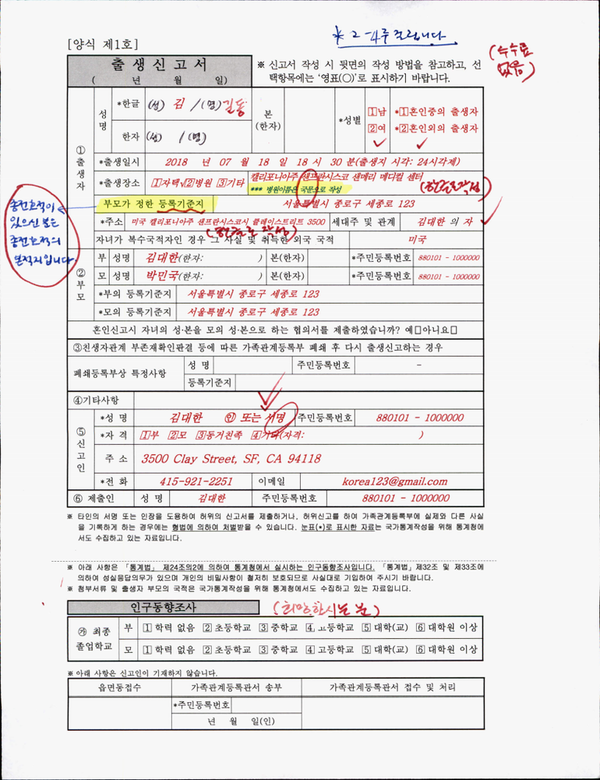 * 2-4주 걸립니다
[양식 제1호]
(수수료 없음)
출 생 신 고 서
( 년 월 일)
※ 신고서 작성 시 뒷면의 작성 방법을 참고하고, 선
택항목에는 '영표(○)'로 표시하기 바랍니다.
① 출생자
성명
*한글 (성) 김 / (명) 길동
본 (한자)
*성별 1남 2여
*1혼인중의 출생자
*2혼인외의 출생자
한자 (성) / (명)
*출생일시 2018 년 07 월 18 일 18 시 30 분(출생지 시각: 24시각제)
*출생장소 1자택 2병원 3기타 캘리포니아주 샌프란시스코 샌메리 메디컬 센터
*** 병원이름은 국문으로 작성
(한국어로 작성)
부모가 정한 등록기준지 서울특별시 종로구 세종로 123
*주소 미국 캘리포니아주 샌프란시스코시 클레이스트리트 3500 세대주 및 관계 김대한 의 자
자녀가 복수국적자인 경우 그 사실 및 취득한 외국 국적 미국
② 부모
부 성명 김대한(한자: ) 본(한자) *주민등록번호 880101 - 1000000
모 성명 박민국(한자: ) 본(한자) *주민등록번호 880101 - 1000000
*부의 등록기준지 서울특별시 종로구 세종로 123
*모의 등록기준지 서울특별시 종로구 세종로 123
혼인신고시 자녀의 성·본을 모의 성·본으로 하는 협의서를 제출하였습니까? 예□아니요□
③친생자관계 부존재확인판결 등에 따른 가족관계등록부 폐쇄 후 다시 출생신고하는 경우
폐쇄등록부상 특정사항
성 명 주민등록번호 -
등록기준지
④기타사항
⑤ 신고인
*성 명 김대한 ㊞ 또는 서명 주민등록번호 880101 - 1000000
*자 격 1부 2모 3동거친족 4기타(자격: )
주 소 3500 Clay Street, SF, CA 94118
*전 화 415-921-2251 이메일 korea123@gmail.com
⑥ 제출인 성 명 김대한 주민등록번호 880101 - 1000000
※ 타인의 서명 또는 인장을 도용하여 허위의 신고서를 제출하거나, 허위신고를 하여 가족관계등록부에 실제와 다른 사실
을 기록하게 하는 경우에는 형법에 의하여 처벌받을 수 있습니다. 눈표(*)로 표시한 자료는 국가통계작성을 위해 통계청에
서도 수집하고 있는 자료입니다.
※ 아래 사항은 「통계법」 제24조의2에 의하여 통계청에서 실시하는 인구동향조사입니다. 「통계법」제32조 및 제33조에
의하여 성실응답의무가 있으며 개인의 비밀사항이 철저히 보호되므로 사실대로 기입하여 주시기 바랍니다.
※ 첨부서류 및 출생자 부모의 국적은 국가통계작성을 위해 통계청에서도 수집하고 있는 자료입니다.
인구동향조사
(희망하시는 분)
㉮ 최종 졸업학교
부 1학력 없음 2초등학교 3중학교 4고등학교 5대학(교) 6대학원 이상
모 1학력 없음 2초등학교 3중학교 4고등학교 5대학(교) 6대학원 이상
※ 아래 사항은 신고인이 기재하지 않습니다.
읍면동접수 가족관계등록관서 송부 가족관계등록관서 접수 및 처리
*주민등록번호
년 월 일(인)